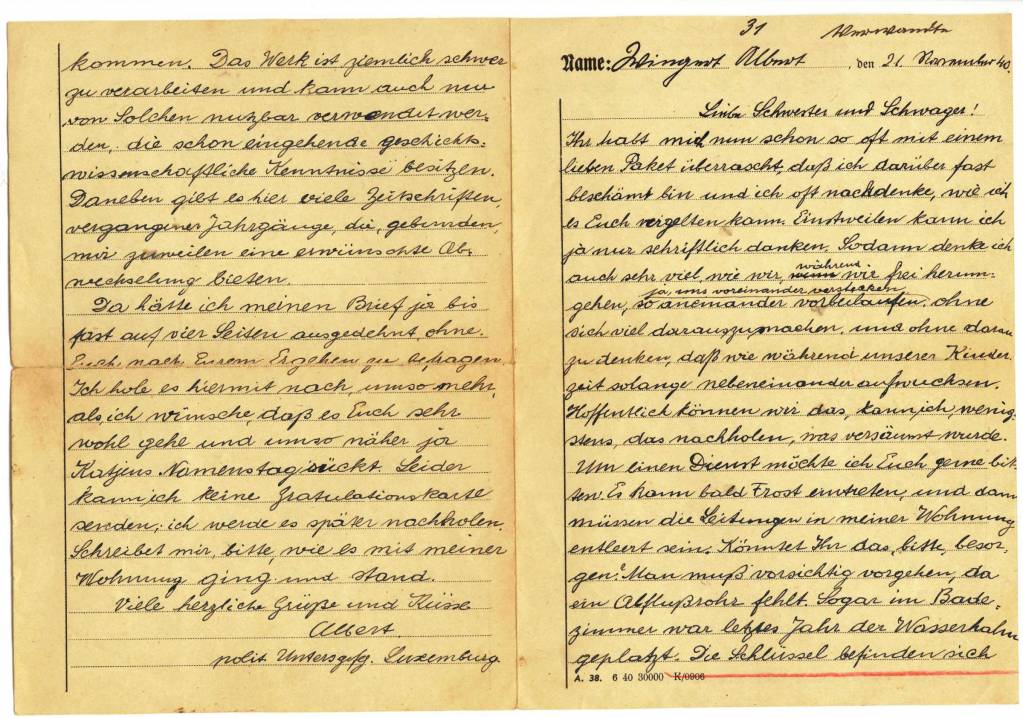 kommen. Das Werk ist ziemlich schwer
zu verarbeiten und kann auch nur
von Solchen nutzbar verwendet wer-
den, die schon eingehende geschichts-
wissenschaftliche Kenntnisse besitzen.
Daneben gibt es hier viele Zeitschriften,
vergangener Jahrgänge, die, gebunden,
mir zuweilen eine erwünschte Ab-
wechselung bieten.
Da hätte ich meinen Brief ja bis
fast auf vier Seiten ausgedehnt, ohne
Euch nach Eurem Ergehen zu befragen.
Ich hole es hiermit nach, umso mehr,
als ich wünsche, daß es Euch sehr
wohl gehe und umso näher ja
Katjens Namenstag rückt. Leider
kann ich keine Gratulationskarte
senden; ich werde es später nachholen.
Schreibet mir, bitte, wie es mit meiner
Wohnung ging und stand.
Viele herzliche Grüße und Küsse
Albert.
polit. Untersgefg. Luxemburg
31 Verwandte
Name: Wingert Albert, den 21. November 40.
Liebe Schwester und Schwager!
Ihr habt mich nun schon so oft mit einem
lieben Paket überrascht, daß ich darüber fast
beschämt bin und ich oft nachdenke, wie ich
es Euch vergelten kann. Einstweilen kann ich
ja nur schriftlich danken. Sodann denke ich
auch sehr viel, wie wir während wir frei herum-
gehen, ja, uns voreinander verstecken
so aneinander vorbeilaufen, ohne
sich viel darauszumachen, und ohne daran
zu denken, daß wie während unserer Kinder
zeit solange nebeneinander aufwuchsen.
Hoffentlich können wir das, kann ich, wenig-
stens, das nachholen, was versäumt wurde.
Um einen Dienst möchte ich Euch gerne bit-
ten. Es kann bald Frost eintreten, und dann
müssen die Leitungen in meiner Wohnung
entleert sein. Könntet Ihr das, bitte, besor-
gen? Man muß vorsichtig vorgehen, da
ein Abflußrohr fehlt. Sogar im Bade-
zimmer war letztes Jahr der Wasserhahn
geplatzt. Die Schlüssel befinden sich
A. 38. 6 40 30000 K/0906